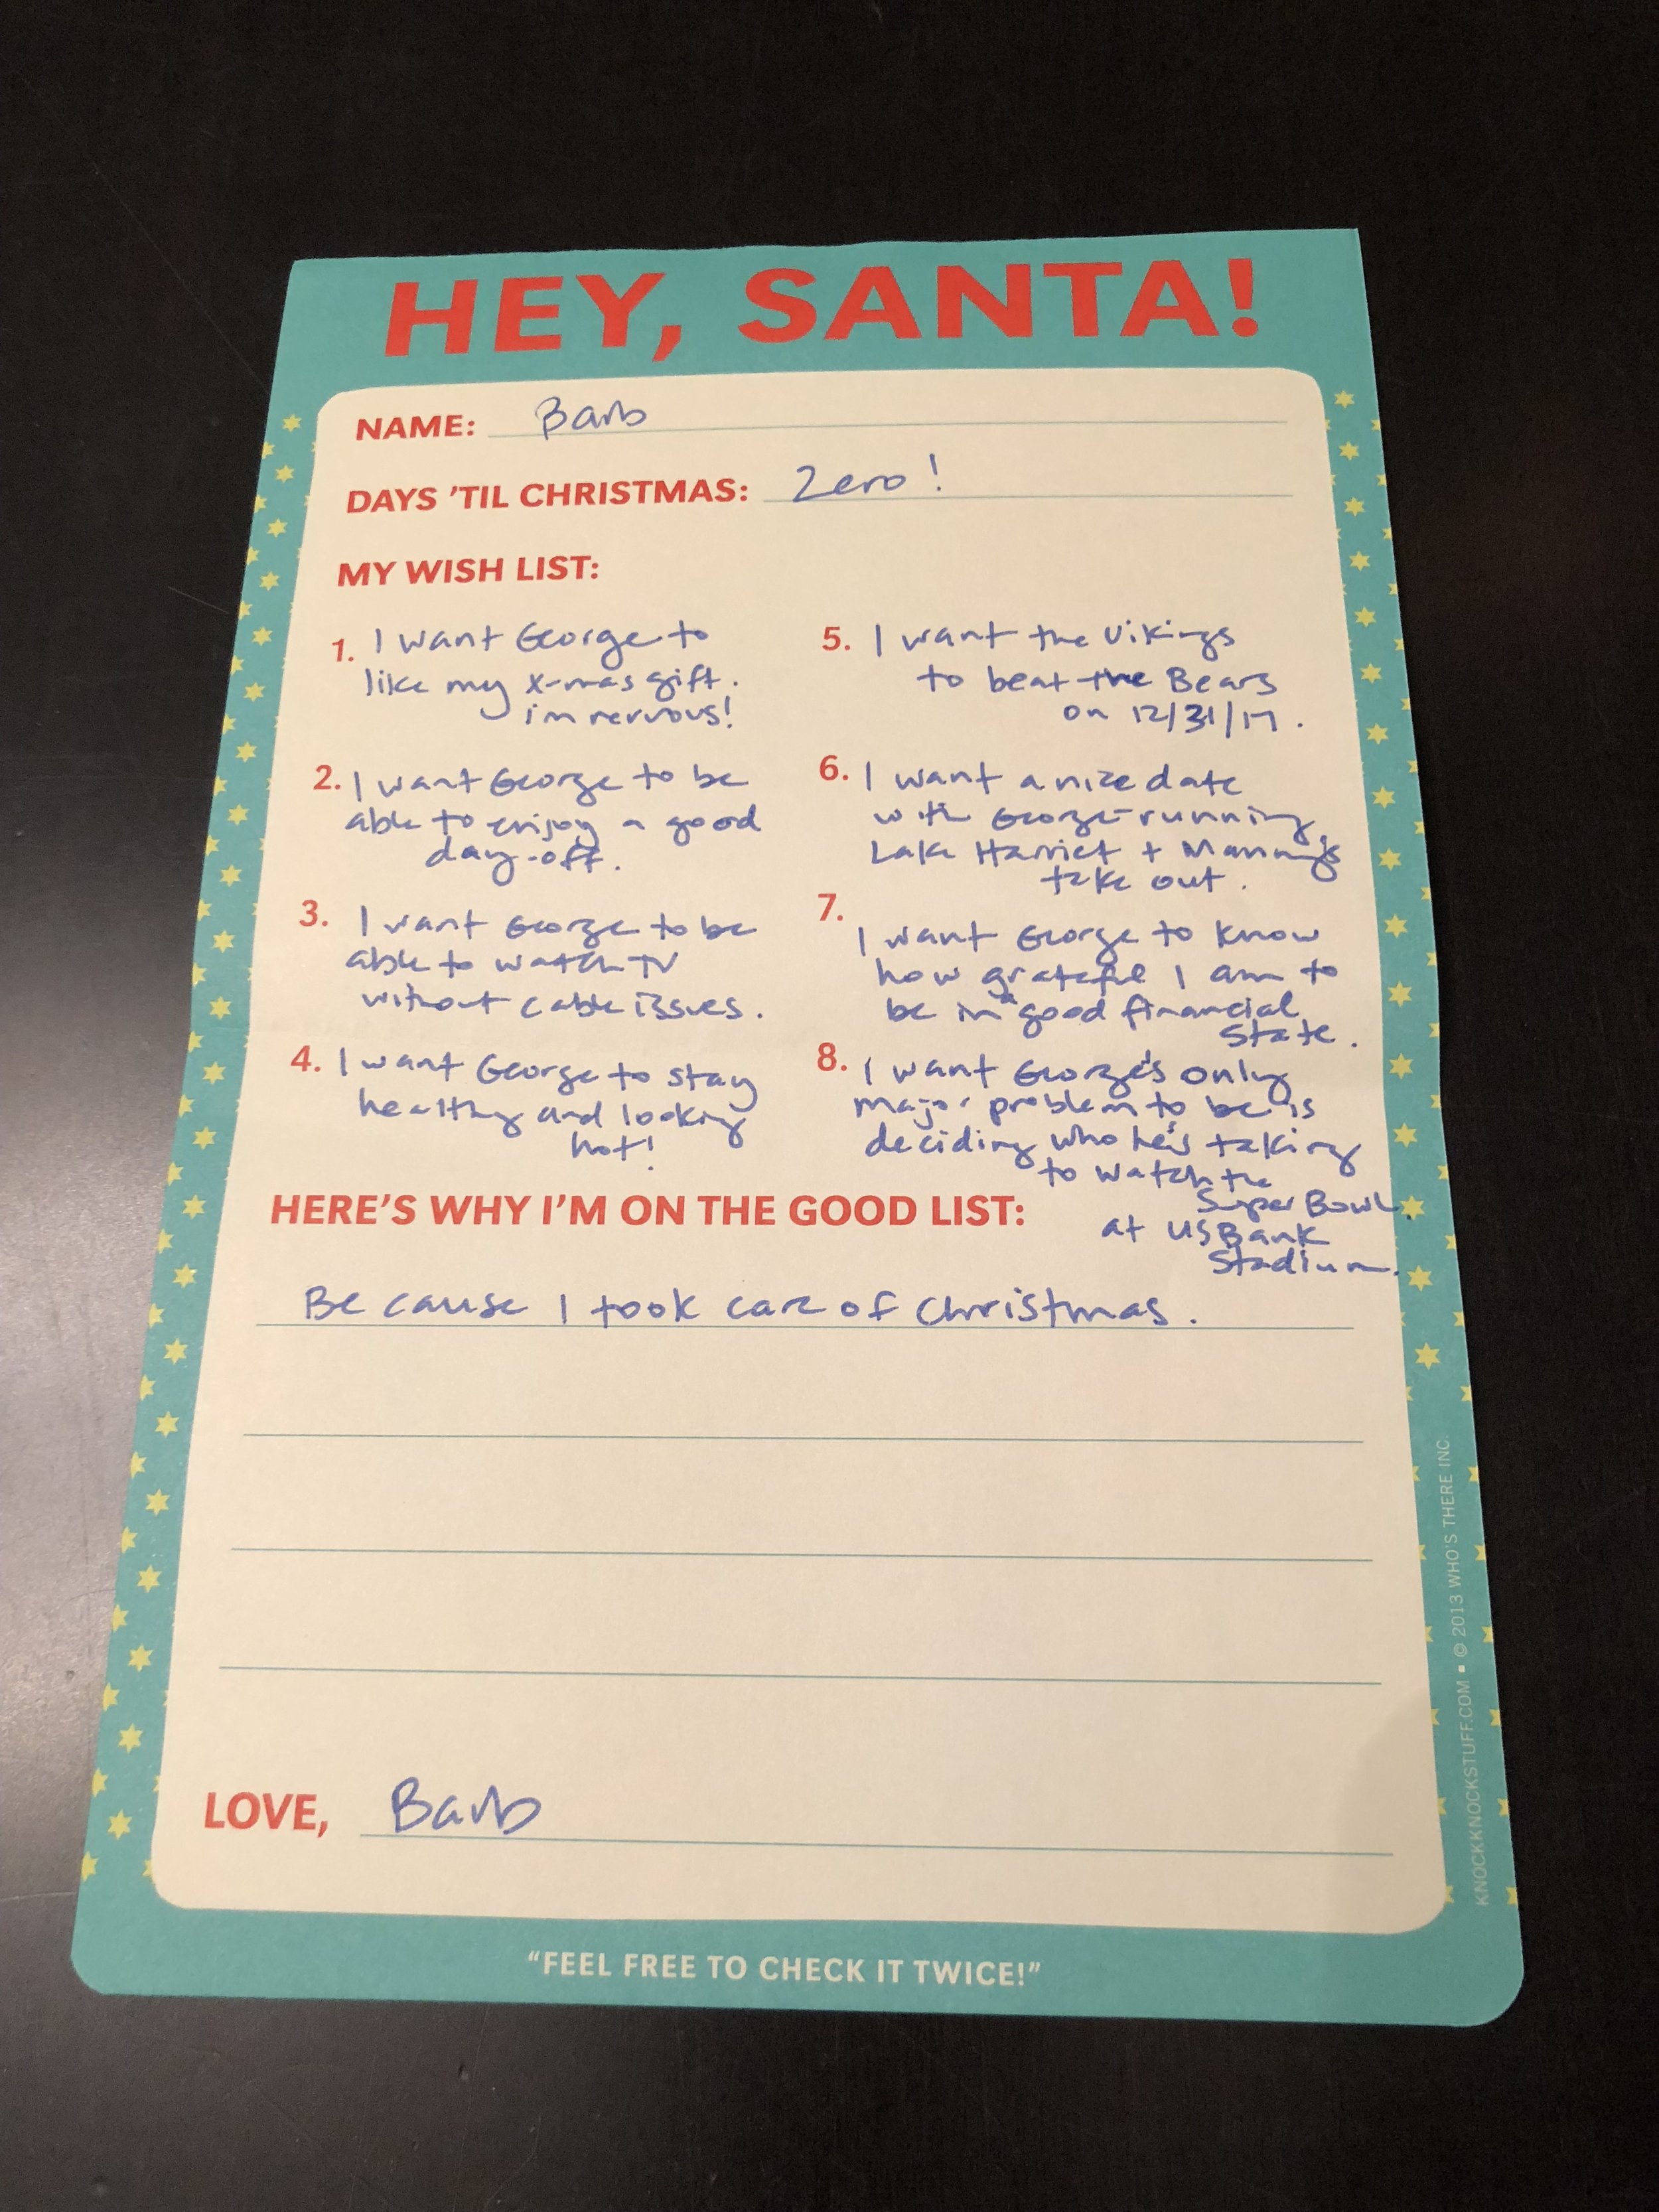 HEY, SANTA!
NAME: Barb
DAYS 'TIL CHRISTMAS: Zero!
MY WISH LIST:
1. I want George to
like my x-mas gift.
i'm nervous!
2. I want George to be
able to enjoy a good
day-off.
3. I want George to be
able to watch TV
without cable issues.
4. I want George to stay
healthy and looking
hot!
5. I want the Vikings
to beat the Bears
on 12/31/17.
6. I want a nice date
with George-running
Lake Harriet + Manning's
take out.
7. I want George to know
how grateful I am to
be in a good financial
state.
8. I want George's only
major problem to be is
deciding who he's taking
to watch the
Super Bowl
at US Bank
Stadium.
HERE'S WHY I'M ON THE GOOD LIST:
Because I took care of Christmas.
LOVE, Barb
"FEEL FREE TO CHECK IT TWICE!"
KNOCKKNOCKSTUFF.COM ▪ © 2013 WHO'S THERE INC.